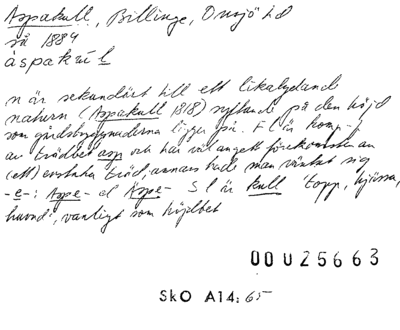 Aspakull, Billinge, Onsjö hd
så 1884
àspakúl

n är sekundärt till ett likalydande
naturn (Aspakull 1818) syftande på den höjd
som gårdsbyggnaderna ligger på. F l är komp-l
av trädbet asp och har väl angett förekomsten av
(ett) enstaka träd, annars hade man väntat sig
-e-: Aspe- el Äspe- S l är kull 'topp, hjässa,
huvud', vanligt som höjdbet
00025663
SkO A14: 65